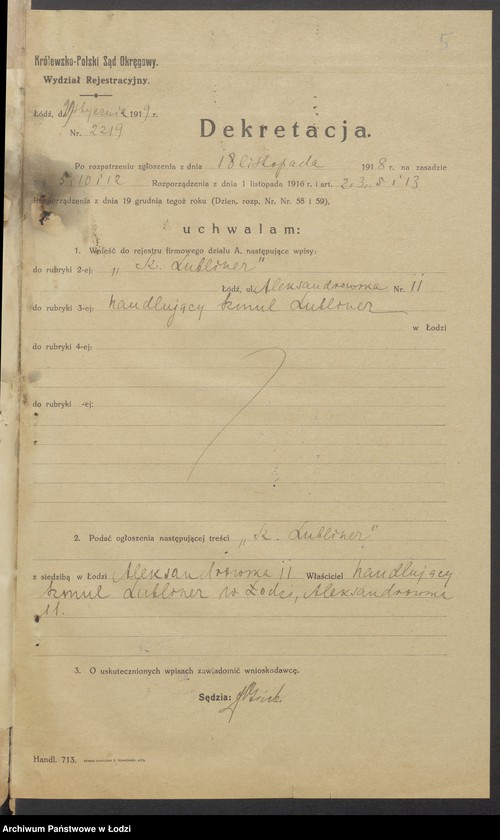 5
Królewsko-Polski Sąd Okręgowy.
Wydział Rejestracyjny.
Łódź, d. stycznia 1919 r.
Nr. 2219
Dekretacja.
Po rozpatrzeniu zgłoszenia z dnia 18 listopada 1918 r. na zasadzie
5, 10 i 12 Rozporządzenia z dnia 1 listopada 1916 r. i art. 2, 3, 5 i 13
Rozporządzenia z dnia 19 grudnia tegoż roku (Dzien. rozp. Nr. Nr. 58 i 59),
uchwalam:
1. Wnieść do rejestru firmowego działu A, następujące wpisy:
do rubryki 2-ej: „ Lubliner"
Łódź, ul. Aleksandrowska Nr. 11
do rubryki 3-ej: handlujący Lubliner
w Łodzi
do rubryki 4-ej:
do rubryki -ej:
2. Podać ogłoszenia następującej treści „ Lubliner"
z siedzibą w Łodzi Aleksandrowska 11 Właściciel handlujący
Lubliner w Łodzi, Aleksandrowska
11.
3. O uskutecznionych wpisach zawiadomić wnioskodawcę.
Sędzia:
Handl. 713.
Archiwum Państwowe w Łodzi